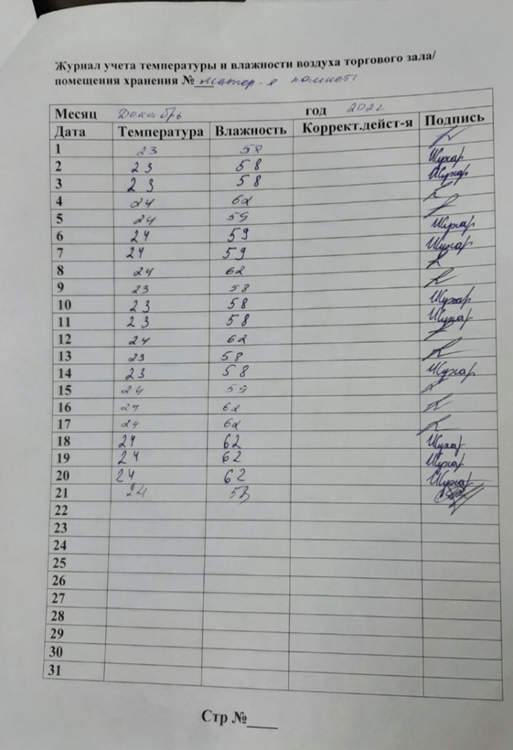 Журнал учета температуры и влажности воздуха торгового зала/
помещения хранения № матер-я комнат
Месяц Декабрь год 2022
Дата Температура Влажность Коррект.дейст-я Подпись
1 23 58
2 23 58 Шухар
3 23 58 Шухар
4 24 62
5 24 59
6 24 59 Шухар
7 24 59 Шухар
8 24 62
9 23 58
10 23 58 Шухар
11 23 58 Шухар
12 24 62
13 23 58
14 23 58 Шухар
15 24 59
16 24 62
17 24 62
18 24 62 Шухар
19 24 62 Шухар
20 24 62 Шухар
21 24
22
23
24
25
26
27
28
29
30
31
Стр №